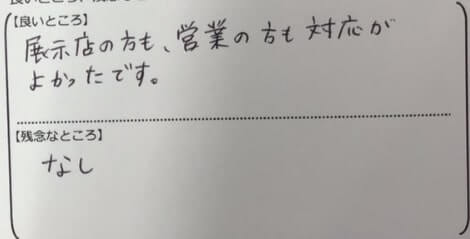 【良いところ】
展示店の方も、営業の方も対応が
よかったです。
【残念なところ】
なし